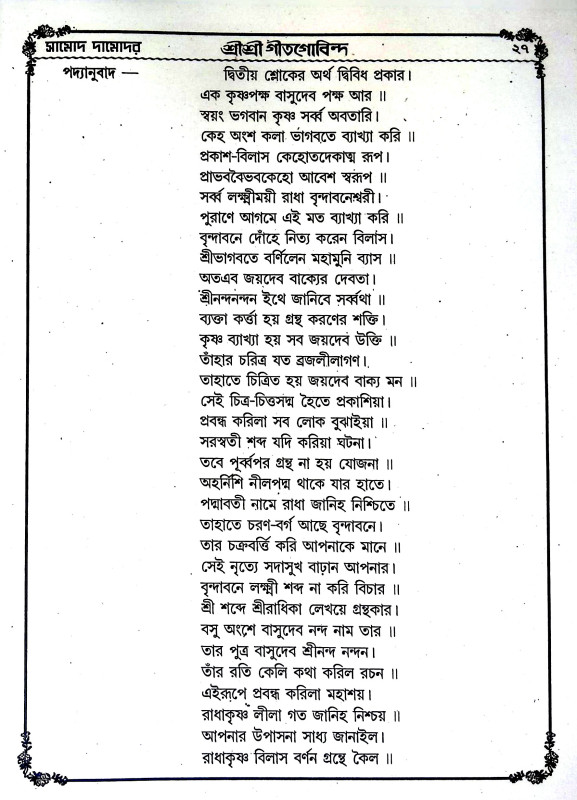 সামোদ দামোদর শ্রীশ্রী গীতগোবিন্দ ২৭
পদ্যানুবাদ — দ্বিতীয় শ্লোকের অর্থ দ্বিবিধ প্রকার।
এক কৃষ্ণপক্ষ বাসুদেব পক্ষ আর ॥
স্বয়ং ভগবান কৃষ্ণ সর্ব্ব অবতারি।
কেহ অংশ কলা ভাগবতে ব্যাখ্যা করি ॥
প্রকাশ-বিলাস কেহোতদেকাত্ম রূপ।
প্রাভববৈভবকেহো আবেশ স্বরূপ ॥
সর্ব্ব লক্ষ্মীময়ী রাধা বৃন্দাবনেশ্বরী।
পুরাণে আগমে এই মত ব্যাখ্যা করি ॥
বৃন্দাবনে দোঁহে নিত্য করেন বিলাস।
শ্রীভাগবতে বর্ণিলেন মহামুনি ব্যাস ॥
অতএব জয়দেব বাক্যের দেবতা।
শ্রীনন্দনন্দন ইথে জানিবে সর্ব্বথা ॥
ব্যক্তা কর্ত্তা হয় গ্রন্থ করণের শক্তি।
কৃষ্ণ ব্যাখ্যা হয় সব জয়দেব উক্তি ॥
তাঁহার চরিত্র যত ব্রজলীলাগণ।
তাহাতে চিত্রিত হয় জয়দেব বাক্য মন ॥
সেই চিত্র-চিত্তসদ্ম হৈতে প্রকাশিয়া।
প্রবন্ধ করিলা সব লোক বুঝাইয়া ॥
সরস্বতী শব্দ যদি করিয়া ঘটনা।
তবে পূর্ব্বপর গ্রন্থ না হয় যোজনা ॥
অহর্নিশি নীলপদ্ম থাকে যার হাতে।
পদ্মাবতী নামে রাধা জানিহ নিশ্চিতে ॥
তাহাতে চরণ-বর্গ আছে বৃন্দাবনে।
তার চক্রবর্ত্তি করি আপনাকে মানে ॥
সেই নৃত্যে সদাসুখ বাঢ়ান আপনার।
বৃন্দাবনে লক্ষ্মী শব্দ না করি বিচার ॥
শ্রী শব্দে শ্রীরাধিকা লেখয়ে গ্রন্থকার।
বসু অংশে বাসুদেব নন্দ নাম তার ॥
তার পুত্র বাসুদেব শ্রীনন্দ নন্দন।
তাঁর রতি কেলি কথা করিল রচন ॥
এইরূপে প্রবন্ধ করিলা মহাশয়।
রাধাকৃষ্ণ লীলা গত জানিহ নিশ্চয় ॥
আপনার উপাসনা সাধ্য জানাইল।
রাধাকৃষ্ণ বিলাস বর্ণন গ্রন্থে কৈল ॥